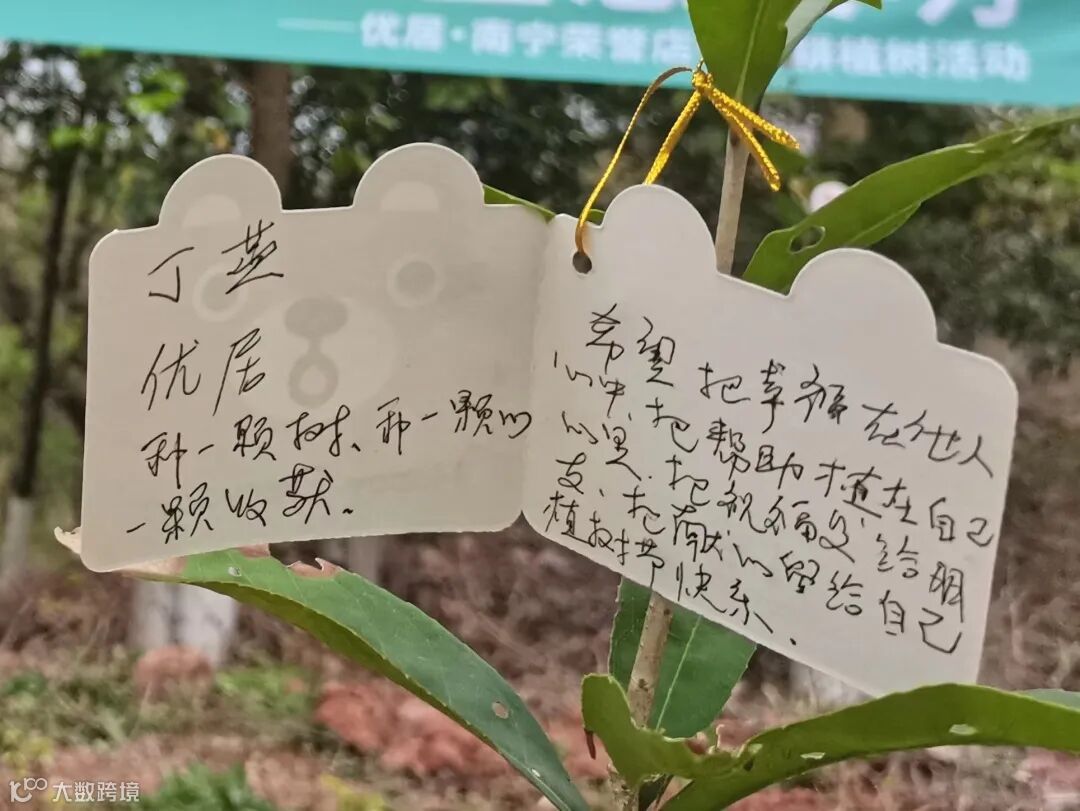 优居·南宁荣誉店
植树活动
丁燕
优居
种一颗树、种一颗心
一颗收获。
希望把幸福在他人
心中、把帮助植在自己
心里、把祝福交给朋
友、把献心留给自己
植树节快乐.
大数跨境